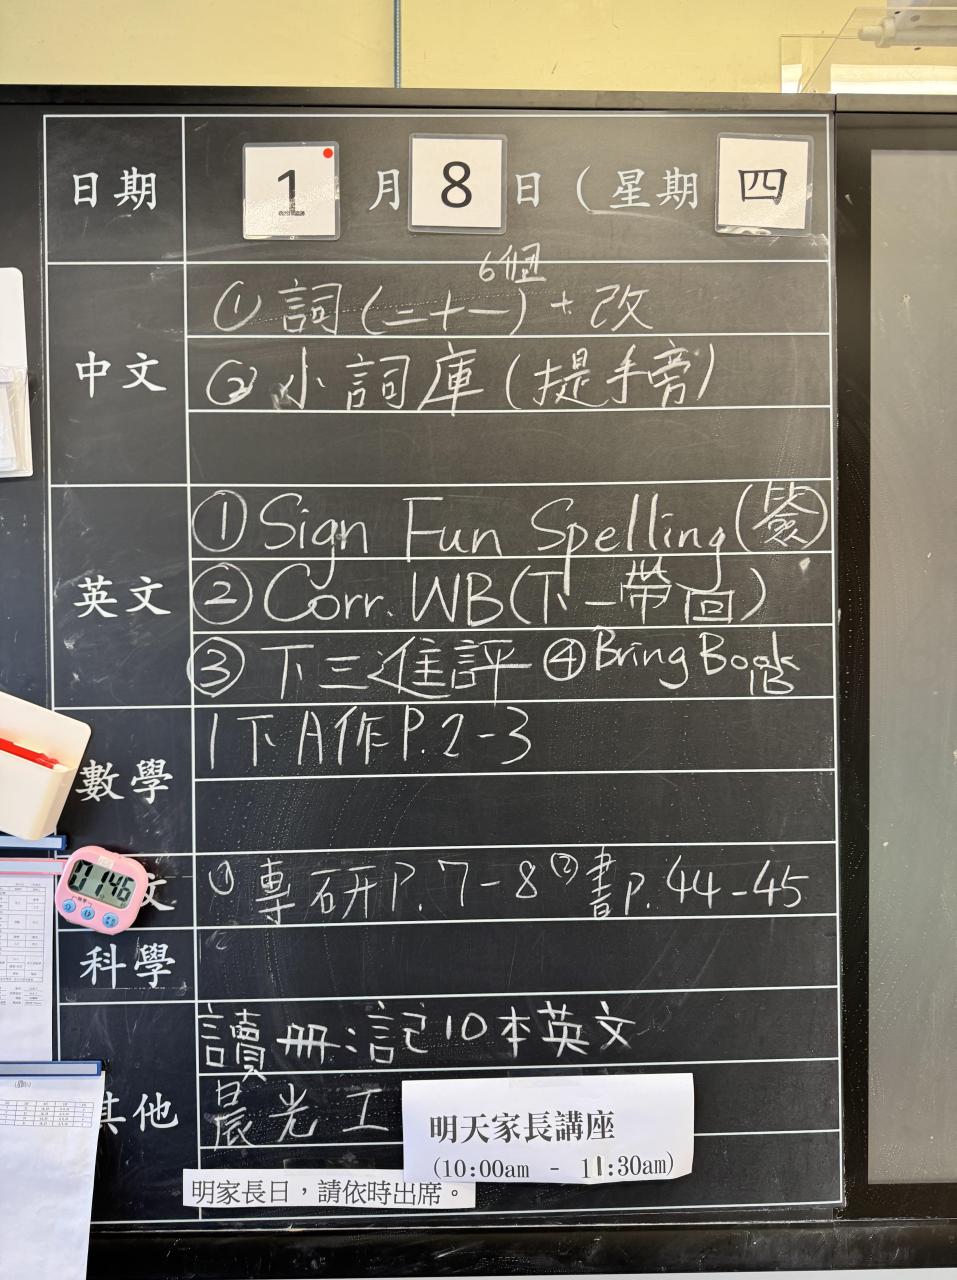 日期 1 月 8 日 (星期 四
6個
中文
① 詞(二十一) + 改
② 小詞庫(提手旁)
英文
① Sign Fun Spelling (簽)
② Corr. WB(下一帶回)
③ 下三進評 ④ Bring Book 1B
數學
1下A作P.2-3
文
① 專研P.7-8 ② 書P.44-45
01:46
科學
讀冊:記10本英文
其他
晨光工
明天家長講座
(10:00am - 11:30am)
明家長日,請依時出席。